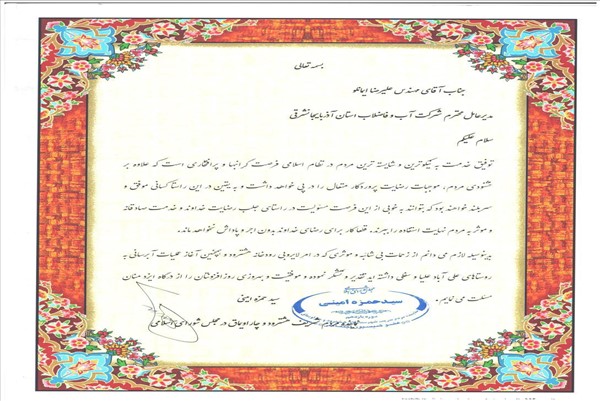 بسمه تعالی
جناب آقای مهندس علیرضا ایمانلو
مدیر عامل محترم شرکت آب و فاضلاب استان آذربایجانشرقی
سلام علیکم
توفیق خدمت به نیکوترین و شایسته ترین مردم در نظام اسلامی فرصت گرانبها و پرافتخاری است که علاوه بر
خشنودی مردم، موجبات رضایت پروردگار متعال را در پی خواهد داشت و به یقین در این راستا کسانی موفق و
سربلند خواهند بود که بتوانند به خوبی از این فرصت مسئولیت در راستای جلب رضایت خداوند و خدمت صادقانه
و موثر به مردم نهایت استفاده را ببرند. قطعا کار برای رضای خداوند بدون اجر و پاداش نخواهد ماند.
بدینوسیله لازم می دانم از زحمات بی شائبه و موثری که در امر لایروبی رودخانه هشترود و همچنین آغاز عملیات آبرسانی به
روستاهای علی آباد علیا و سفلی داشته اید تقدیر و تشکر نموده و موفقیت و بهروزی روزافزونتان را از درگاه ایزد منان
مسئلت می نمایم.
سید حمزه امینی
سید حمزه امینی
نماینده مردم شریف هشترود و چاراویماق در مجلس شورای اسلامی